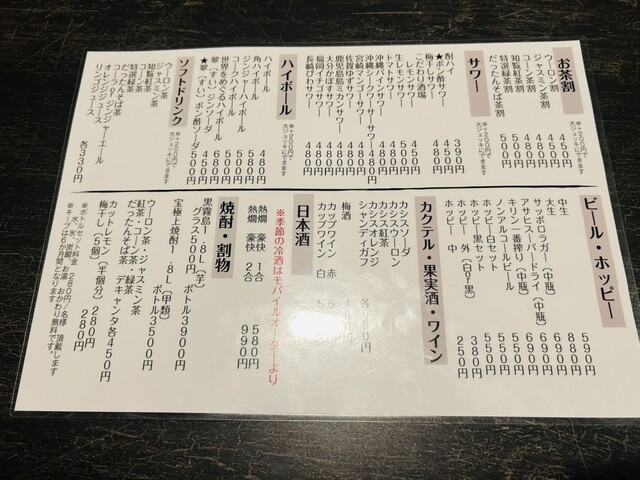 お茶割
※+200円で大ジョッキにできます
ウーロン割 450円
ジャスミン茶割 450円
コーン茶割
知覧紅茶割
特選緑茶割 500円
だったんそば茶割 500円
サワー
※+200円で大ジョッキにできます
酎ハイ 390円
★ポン酢サワー 450円
梅干しサワー
こだわり酒場
レモンサワー 450円
生レモンサワー
トマトサワー
沖縄パインサワー
沖縄シークワーサーサワー 480円
宮崎マンゴーサワー 480円
佐賀ゆずサワー 480円
鹿児島ミカンサワー 480円
大分かぼすサワー 480円
福岡イチゴサワー 480円
長崎びわサワー 480円
ハイボール
※+200円で大ジョッキにできます
ハイボール 480円
角ハイボール
ジンジャーハイボール 580円
コークハイボール 580円
世界をめぐるハイボール 680円
翠(すい)ジンソーダ 450円
★翠(すい)ポン酢ソーダ 500円
ソフトドリンク
※+200円で大ジョッキにできます
ウーロン茶
ジャスミン茶
知覧紅茶
コーン茶
特選緑茶
だったんそば茶
コーラ
ジンジャーエール
オレンジジュース
リンゴジュース 各330円
ビール・ホッピー
中生 590円
大生 880円
サッポロラガー(中瓶) 690円
アサヒスーパードライ(中瓶) 690円
キリン一番搾り(中瓶) 690円
ノンアルコールビール 550円
ホッピー白セット 550円
ホッピー黒セット 550円
ホッピー 外(白or黒) 380円
ホッピー 中 250円
カクテル・果実酒・ワイン
カシスソーダ
カシスウーロン
カシス紅茶
カシスオレンジ
シャンディガフ
梅酒
カップワイン 赤
カップワイン 白
日本酒
※季節の冷酒はモバイルオーダーより
熱燗 豪快 1合 580円
熱燗 豪快 2合 990円
焼酎・割物
黒霧島1.8L(芋)
グラス500円 ボトル3900円
宝極上焼酎1.8L(甲類)
ボトル3500円
ウーロン茶・ジャスミン茶
紅茶・コーン茶・緑茶
だったんそば茶 デキャンタ各450円
カットレモン(半個分) 280円
梅干し(5個) 280円
※ボトルセット料金 280円/名様 頂戴します
(水、氷、炭酸、お湯 おかわり無料です)
※キープは6カ月間となります